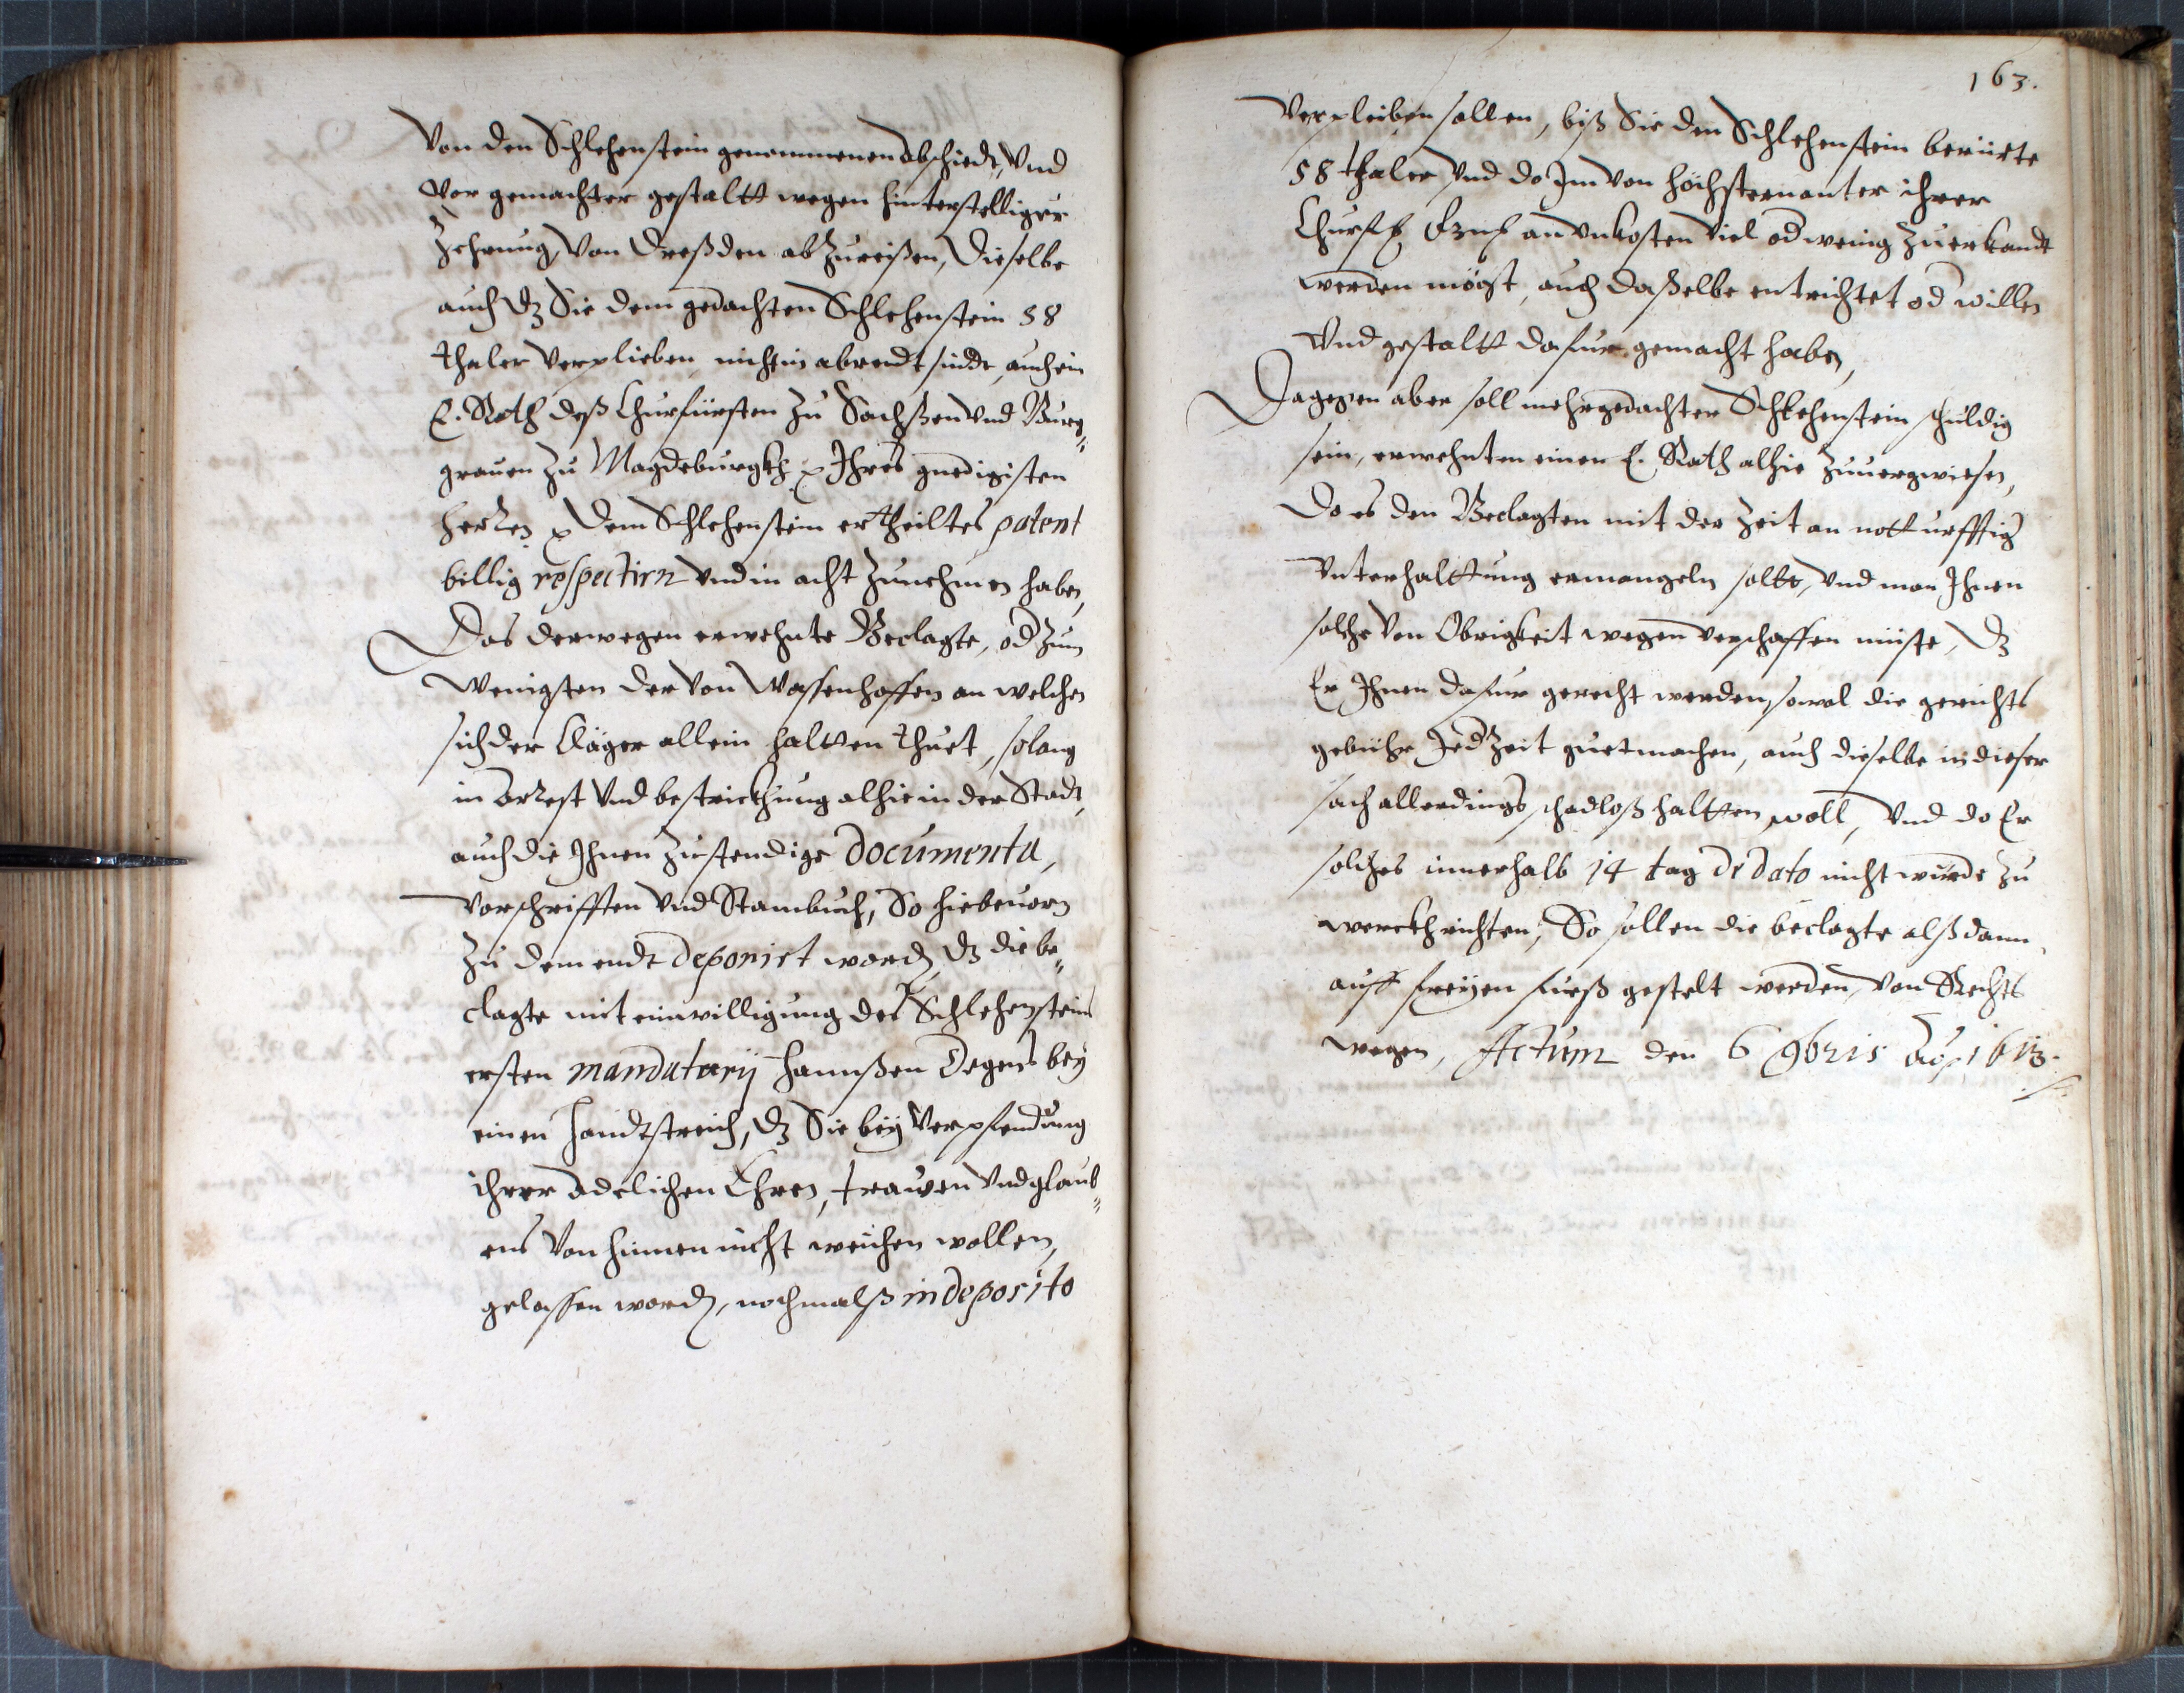 Von den Schlehenstein genommenen abschiedt, Vnd
Vor gemachter gestaltt wegen hinterstelliger
Zehrung, Von Dreßden abZureißen, Dieselbe
auch dz Sie dem gedachten Schlehenstein 58
thaler Verplieben nicht in abredt sindt, auch ein
E. Rath deß Churfürsten Zu Sachßen Vnd Burg„
grauen Zu Magdeburgkh p Ihres gnedigisten
Herren p dem Schlehenstein ertheiltes patent
billig respectirn Vnd in acht Zunehmen haben,
Das derwegen erwehnte Beclagte, od Zum
Wenigsten der Von Wassenhoffen an welchen
sich der Cläger allein haltten thuet, solang
in Arrest Vnd bestrickhung alhie in der Stadt,
auch die Ihnen Zustendige Documenta,
Vorschrifften Vnd Stambuch, So hiebeuorn
Zu dem endt deponirt word, dz die be„
clagte mit einwilligung des Schlehensteins
ersten mandatarij Hannßen Degens bey
einen Handtstreich, dz Sie bey Verpfendung
ihrer Adelichen Ehren, trawen Vnd glaub„
ens Von hinnen nicht weichen wollen,
gelassen word, nochmalß in deposito
163.
Verpleiben sollen, biß Sie den Schlehenstein berürte
58 thaler Vnd do Im Von höchsternanter ihrer
Churfl an Vnkosten Viel od wenig Zuerkandt
werden mögt, auch daßelbe entrichtet od willen
Vnd gestaltt dafür gemacht haben,
Dagegen aber soll mehrgedachter Schlehenstein schuldig
sein, erwehntem einen E. Rath alhie Zuuergwiesen,
Do es den Beclagten mit der Zeit an notturfftig
Vnterhalttung ermangeln solte, Vnd man Ihnen
solche Von Obrigkeit wegen Verschaffen müste, dz
Er Ihnen dafür gerecht werden, sowol die gerichts
gebühr Jed Zeit guetmachen, auch dieselbe in dieser
sach allerdings schadloß haltten woll, Vnd do Er
solches innerhalb 14 tag de dato nicht würde Zu
werckh richten, So sollen die beclagte alß dann
auff freyen fueß gestelt werden, Von Rechts
wegen, Actum den 6 9bris Ao 1613.